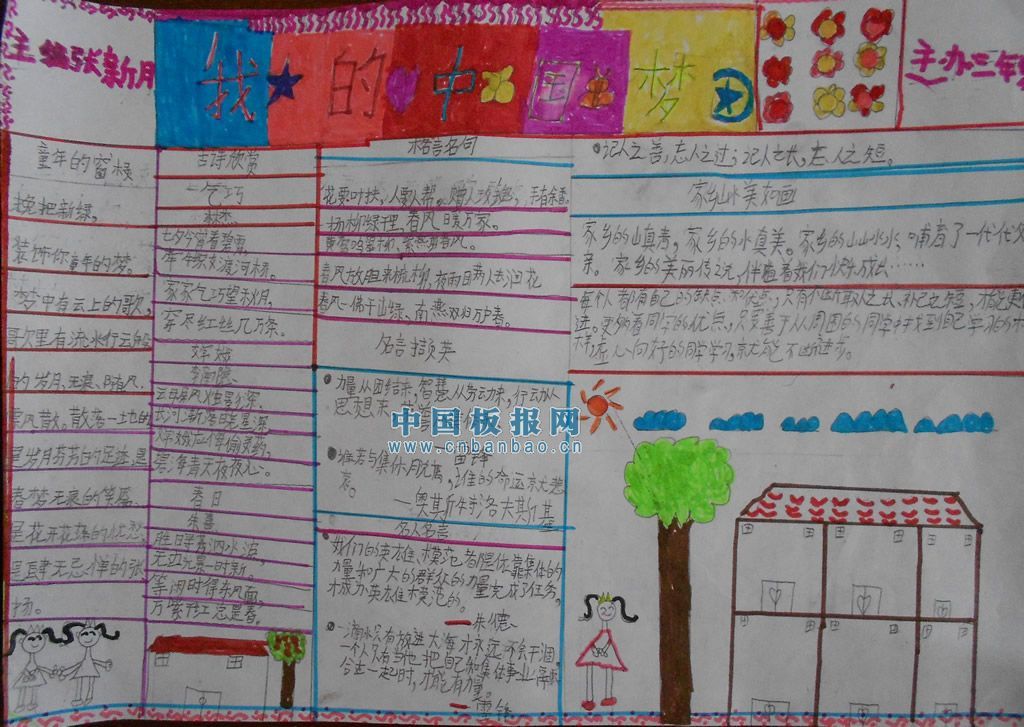 主编张新月
我的中国梦
主办三年
童年的窗棂
挽把新绿,
装饰你童年的梦。
梦中有云上的歌,
歌里有流水行云
的岁月,无衰、随风,
随风散,散落一地的
是岁月芬芳的足迹,是
春梦无衰的笔
是花开花落的
是肆无忌惮的张
扬。
古诗欣赏
乞巧
林杰
七夕今宵看碧霄,
牵牛织女渡河桥。
家家乞巧望秋月,
穿尽红丝几万条。
嫦娥
李商隐
云母屏风烛影深,
长河渐落晓星沉。
嫦娥应悔偷灵药,
碧海青天夜夜心。
春日
朱熹
胜日寻芳泗水滨,
无边光景一时新。
等闲时得东风面
万紫千红总是春。
格言名句
花要叶扶,人要人帮。赠人玫瑰,手有余香。
杨柳绿千里,春风日暖万家。
黄莺鸣翠柳,紫燕剪春风。
春风放胆来梳柳,夜雨目两人去润花
春风一佛千山绿、南燕双归万户春。
名言撷英
力量从团结来,智慧从劳云力来,行云力从
思想来,
谁若与集体脱离,谁的命运京尤悲
哀。
—奥其斯特洛夫斯基
名人名言
我们的英雄、模范者是依靠集体的
力量和广大的群众的力量完成了任务,
才成为英雄模范的。
—朱德
一滴水只有放进大海才永远不会干涸,
一个人只有当他把自己和集体事业
合在一起时,才能有力量。
—雷锋
记人之善,忘人之过;记人之长,忘人之短。
家乡山水美如画
家乡的山真青,家乡的水真美。家乡的山山水水,哺育了一代代父
亲。家乡的美丽传说,伴随着我们快乐成长……
每个人都有自己的缺点和优点,只有不断取人之长,补己之短,才能更
进。要多看同学的优点,只要善于从周围的同学中找到自己学习的木
样,虚心向好的同学学习,京尤能不断进步。
中国板报网
www.cnbanbao.cn